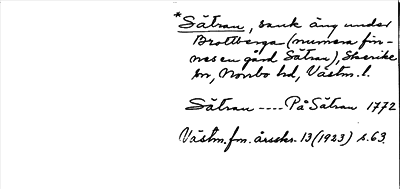 *Sätran, sank äng under
Brottberga (numera fin-
nes en gård Sätran), Skerike
sn, Norrbo hd, Västm. l.
Sätran ---- På Sätran 1772
Västm. fm. årsskr. 13 (1923) s. 63.